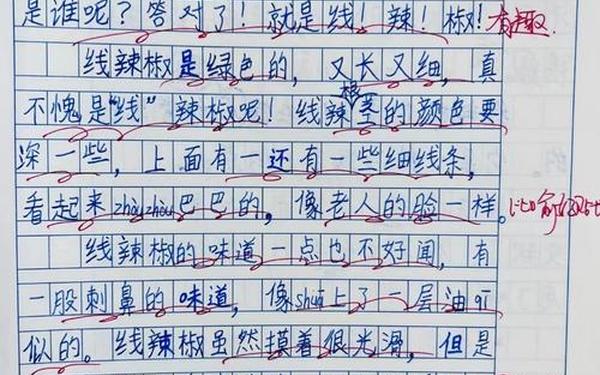 是谁呢？答对了！就是线！辣！椒！有趣
线辣椒是绿色的，又长又细，真
不愧是“线”辣椒呢！线辣根茎的颜色要
深一些，上面有一还有一些细线条，
看起来zhòuzhòu巴巴的，像老人的脸一样。比喻
线辣椒的味道一点也不好闻，有
一股刺鼻的味道，像shuā上了一层油qī
似的。线辣椒虽然摸着很光滑，但是